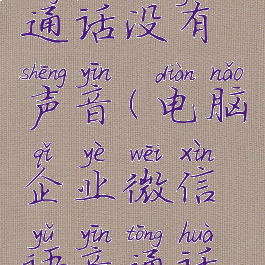 通话没有
shēng yīn diàn nǎo
声音(电脑
qǐ yè wēi xìn
企业微信
yǔ yīn tōng huà
语音通话